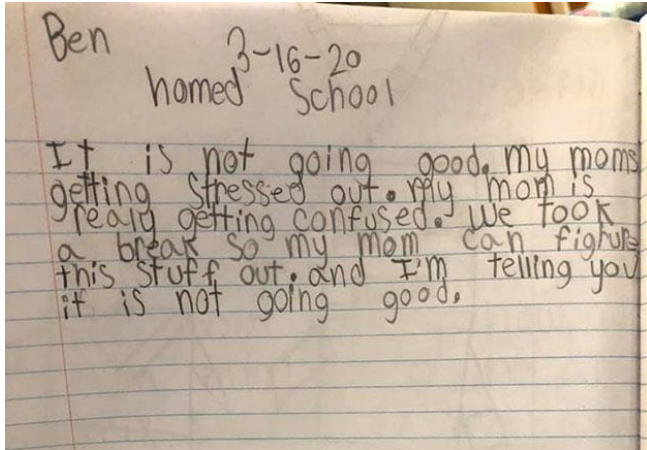 Ben
3-16-20
homed School
It is not going good. my moms
getting stressed out. My mom is
realy getting confused. We took
a break so my mom can figture
this stuff out. and I'm telling you
it is not going good.